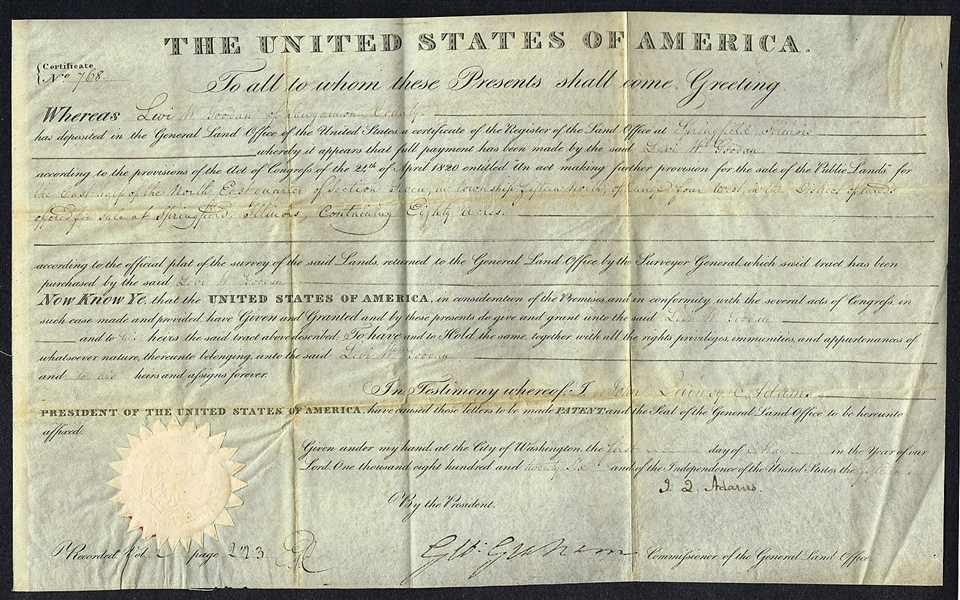 THE UNITED STATES OF AMERICA.
Certificate
No. 768
To all to whom these Presents shall come, Greeting
Whereas Levi W. Goodan of Sangamon County
has deposited in the General Land Office of the United States, a certificate of the Register of the Land Office at Springfield Illinois
whereby it appears that full payment has been made by the said Levi W. Goodan
according to the provisions of the Act of Congress of the 24th of April 1820 entitled "An act making further provision for the sale of the Public Lands" for
the East half of the North East quarter of Section Eleven, in Township fifteen North, of Range four West, in the District of lands
offered for sale at Springfield, Illinois, Containing Eighty acres.
according to the official plat of the survey of the said Lands, returned to the General Land Office by the Surveyor General, which said tract has been
purchased by the said Levi W. Goodan
Now Know Ye, that the UNITED STATES OF AMERICA, in consideration of the Premises, and in conformity with the several acts of Congress, in
such case made and provided, have Given and Granted and by these presents do give and grant unto the said Levi W. Goodan
and to his heirs the said tract above described: To have and to Hold the same, together with all the rights, privileges, immunities, and appurtenances of
whatsoever nature, thereunto belonging, unto the said Levi W. Goodan
and to his heirs and assigns forever.
In Testimony whereof, I John Quincy Adams
PRESIDENT OF THE UNITED STATES OF AMERICA, have caused these letters to be made PATENT and the Seal of the General Land Office to be hereunto
affixed.
Given under my hand, at the City of Washington, the first day of May in the Year of our
Lord, One thousand eight hundred and twenty and of the Independence of the United States the
J. Q. Adams.
By the President,
Recorded, Vol. page 223 Geo: Graham Commissioner of the General Land Office